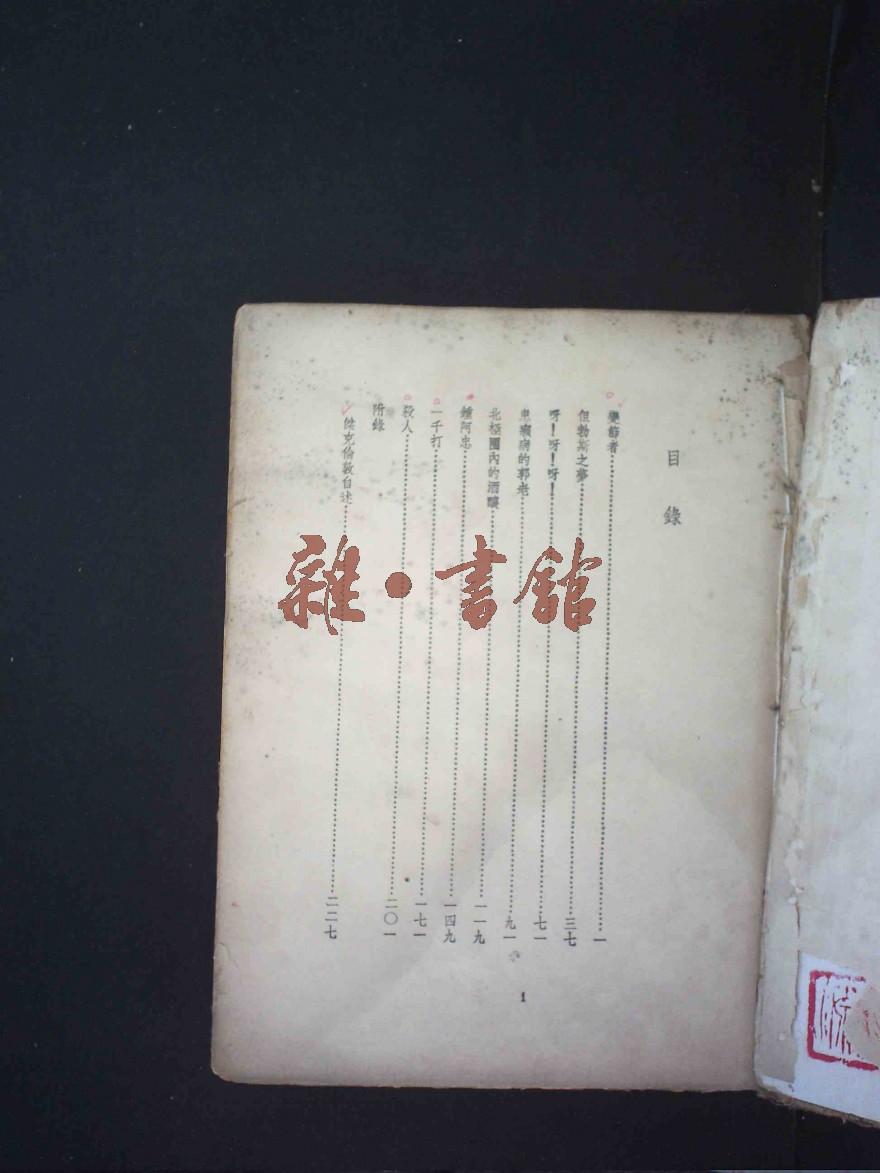 目錄
變節者 一
但勃斯之夢 三七
呀！呀！呀！ 七一
患癩病的郭老 九一
北極圈內的酒釀 一一九
鍾阿忠 一四九
一千打 一七一
殺人 二〇一
附錄
傑克倫敦自述 二二七
1
雜·書館